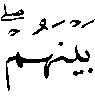 بَيْنَهُمْۖ